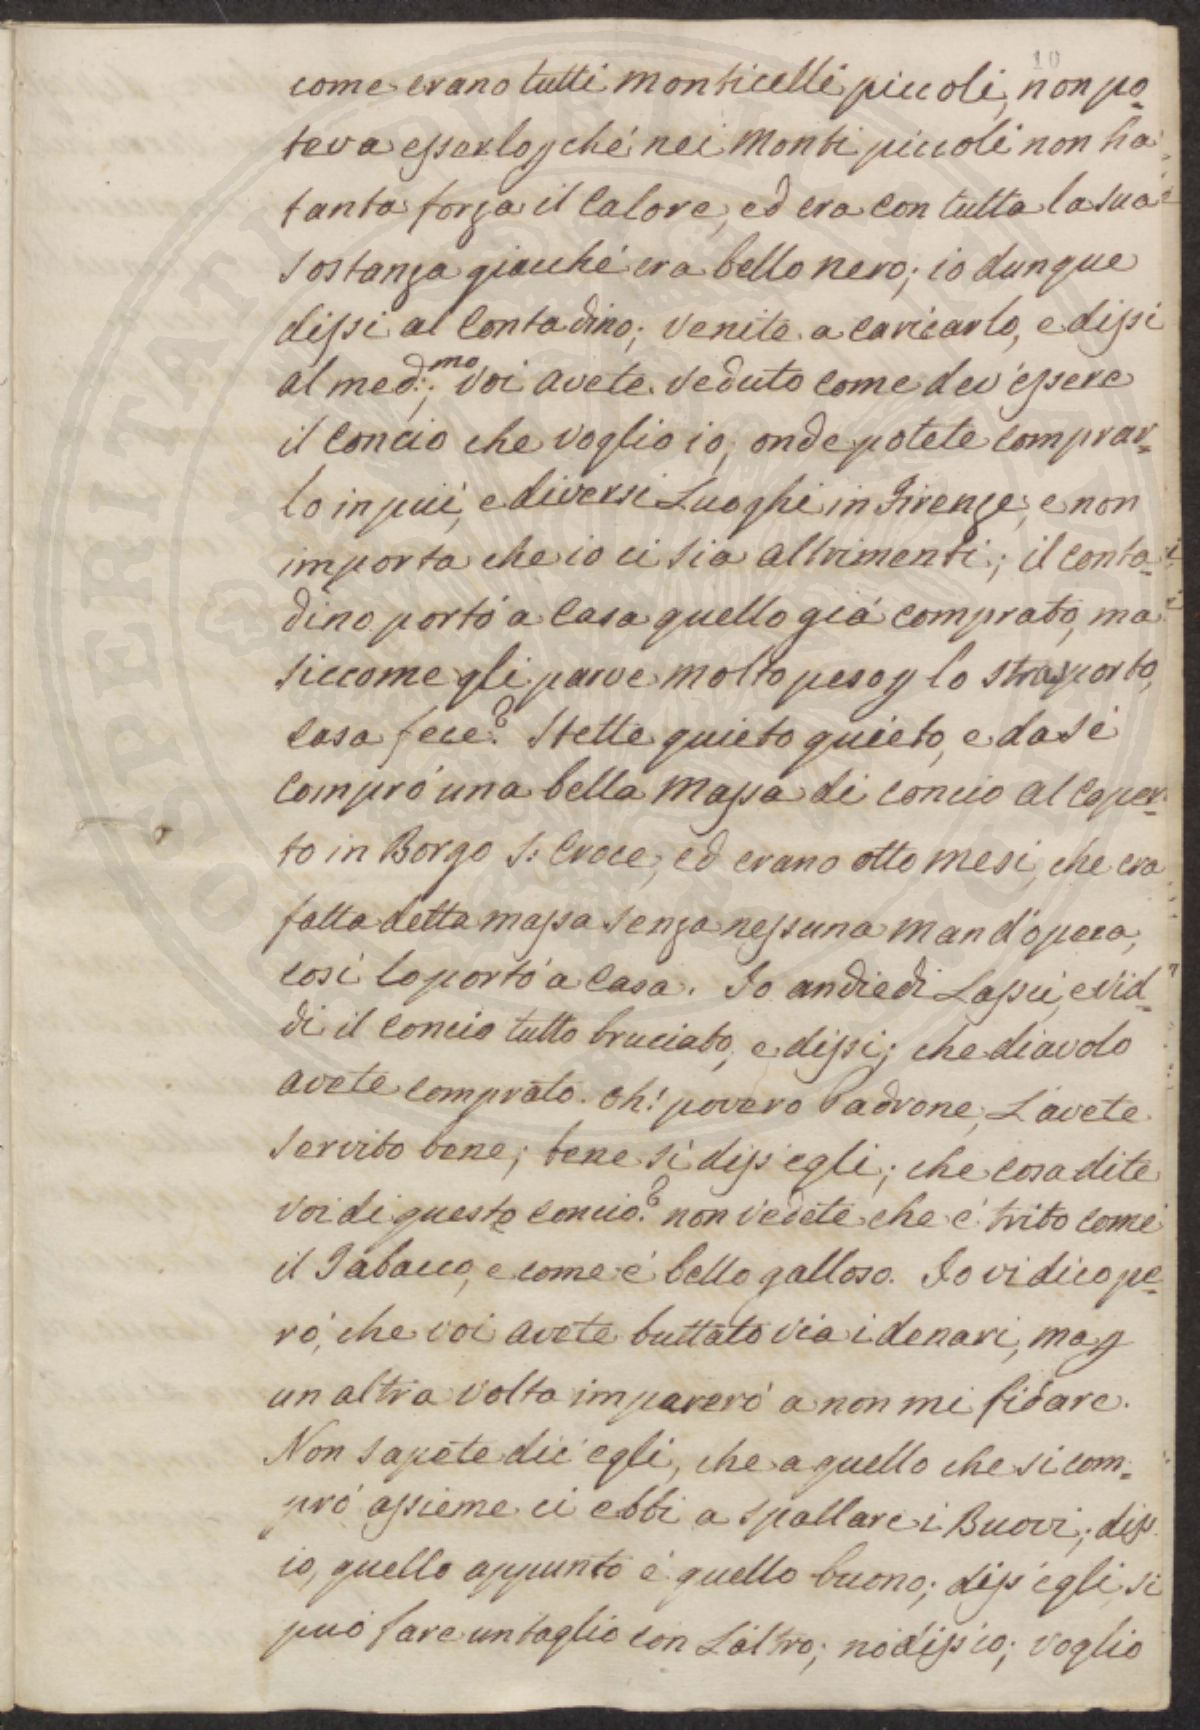 10
come erano tutti monticelli piccoli, non po-
teva esserlo p ché nei Monti piccoli non ha
tanta forza il Calore, ed era con tutta la sua
Sostanza giacché era bello nero; io dunque
dissi al Contadino; venite a caricarlo, e dissi
al med:mo; voi avete veduto come dev'essere
il Concio che voglio io, onde potete comprar-
lo in piú, e diversi Luoghi in Firenze, e non
importa che io ci sia altrimenti; il conta-
dino portó a Casa quello giá comprato, ma
siccome gli parve molto peso p lo strasporto,
cosa fece? Stette quieto quieto, e da sé
Compró una bella Massa di concio al coper-
to in Borgo S: Croce, ed erano otto mesi, che era
fatta detta massa senza nessuna man d'opera,
cosí lo portó a Casa. Io andiedi Lassú, e vid-
di il Concio tutto bruciato, e dissi; che diavolo
avete comprato. Oh! povero Padrone, L'avete
servito bene; bene sí diss'egli; che cosa dite
voi di questo concio? non vedete che é trito come
il Tabacco, e come é bello galloso. Io vi dico pe-
ró, che voi avete buttato via i denari, ma p
un altra volta impareró a non mi fidare.
Non sapete dic'egli, che a quello che si com-
pró assieme ci ebbi a spallare i Buovi; diss'
io, quello appunto é quello buono; diss'egli, si
puó fare un taglio con L'altro; nó diss'io; voglio
SPERITATI